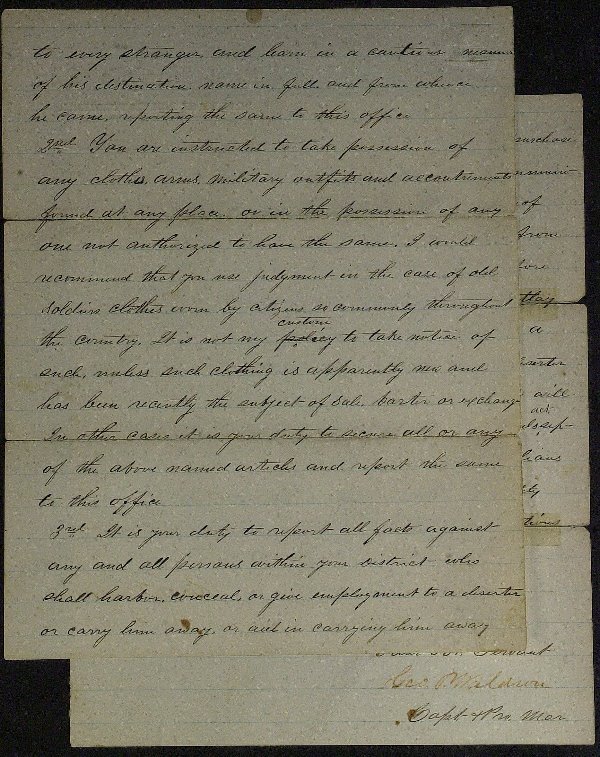 to every stranger and learn in a cautious manner
of his destination, name in full, and from whence
he came, reporting the same to this office
2nd You are instructed to take possession of
any clothes, arms, military outfits and accoutrements
found at any place, or in the possession of any
one not authorized to have the same. I would
recommend that you use judgment in the case of old
soldiers clothes worn by citizens so commonly throughout
the country. It is not my policy custom to take notice of
such, unless such clothing is apparently new and
has been recently the subject of sale, barter or exchange
In other cases it is your duty to secure all or any
of the above named articles and report the same
to this office
3rd It is your duty to report all facts against
any and all persons within your district who
shall harbor, conceal, or give employment to a deserter
or carry him away, or aid in carrying him away
purchase
of
from
a
deserter
will
act
ty
Servant
Geo
Capt & Pro Mar